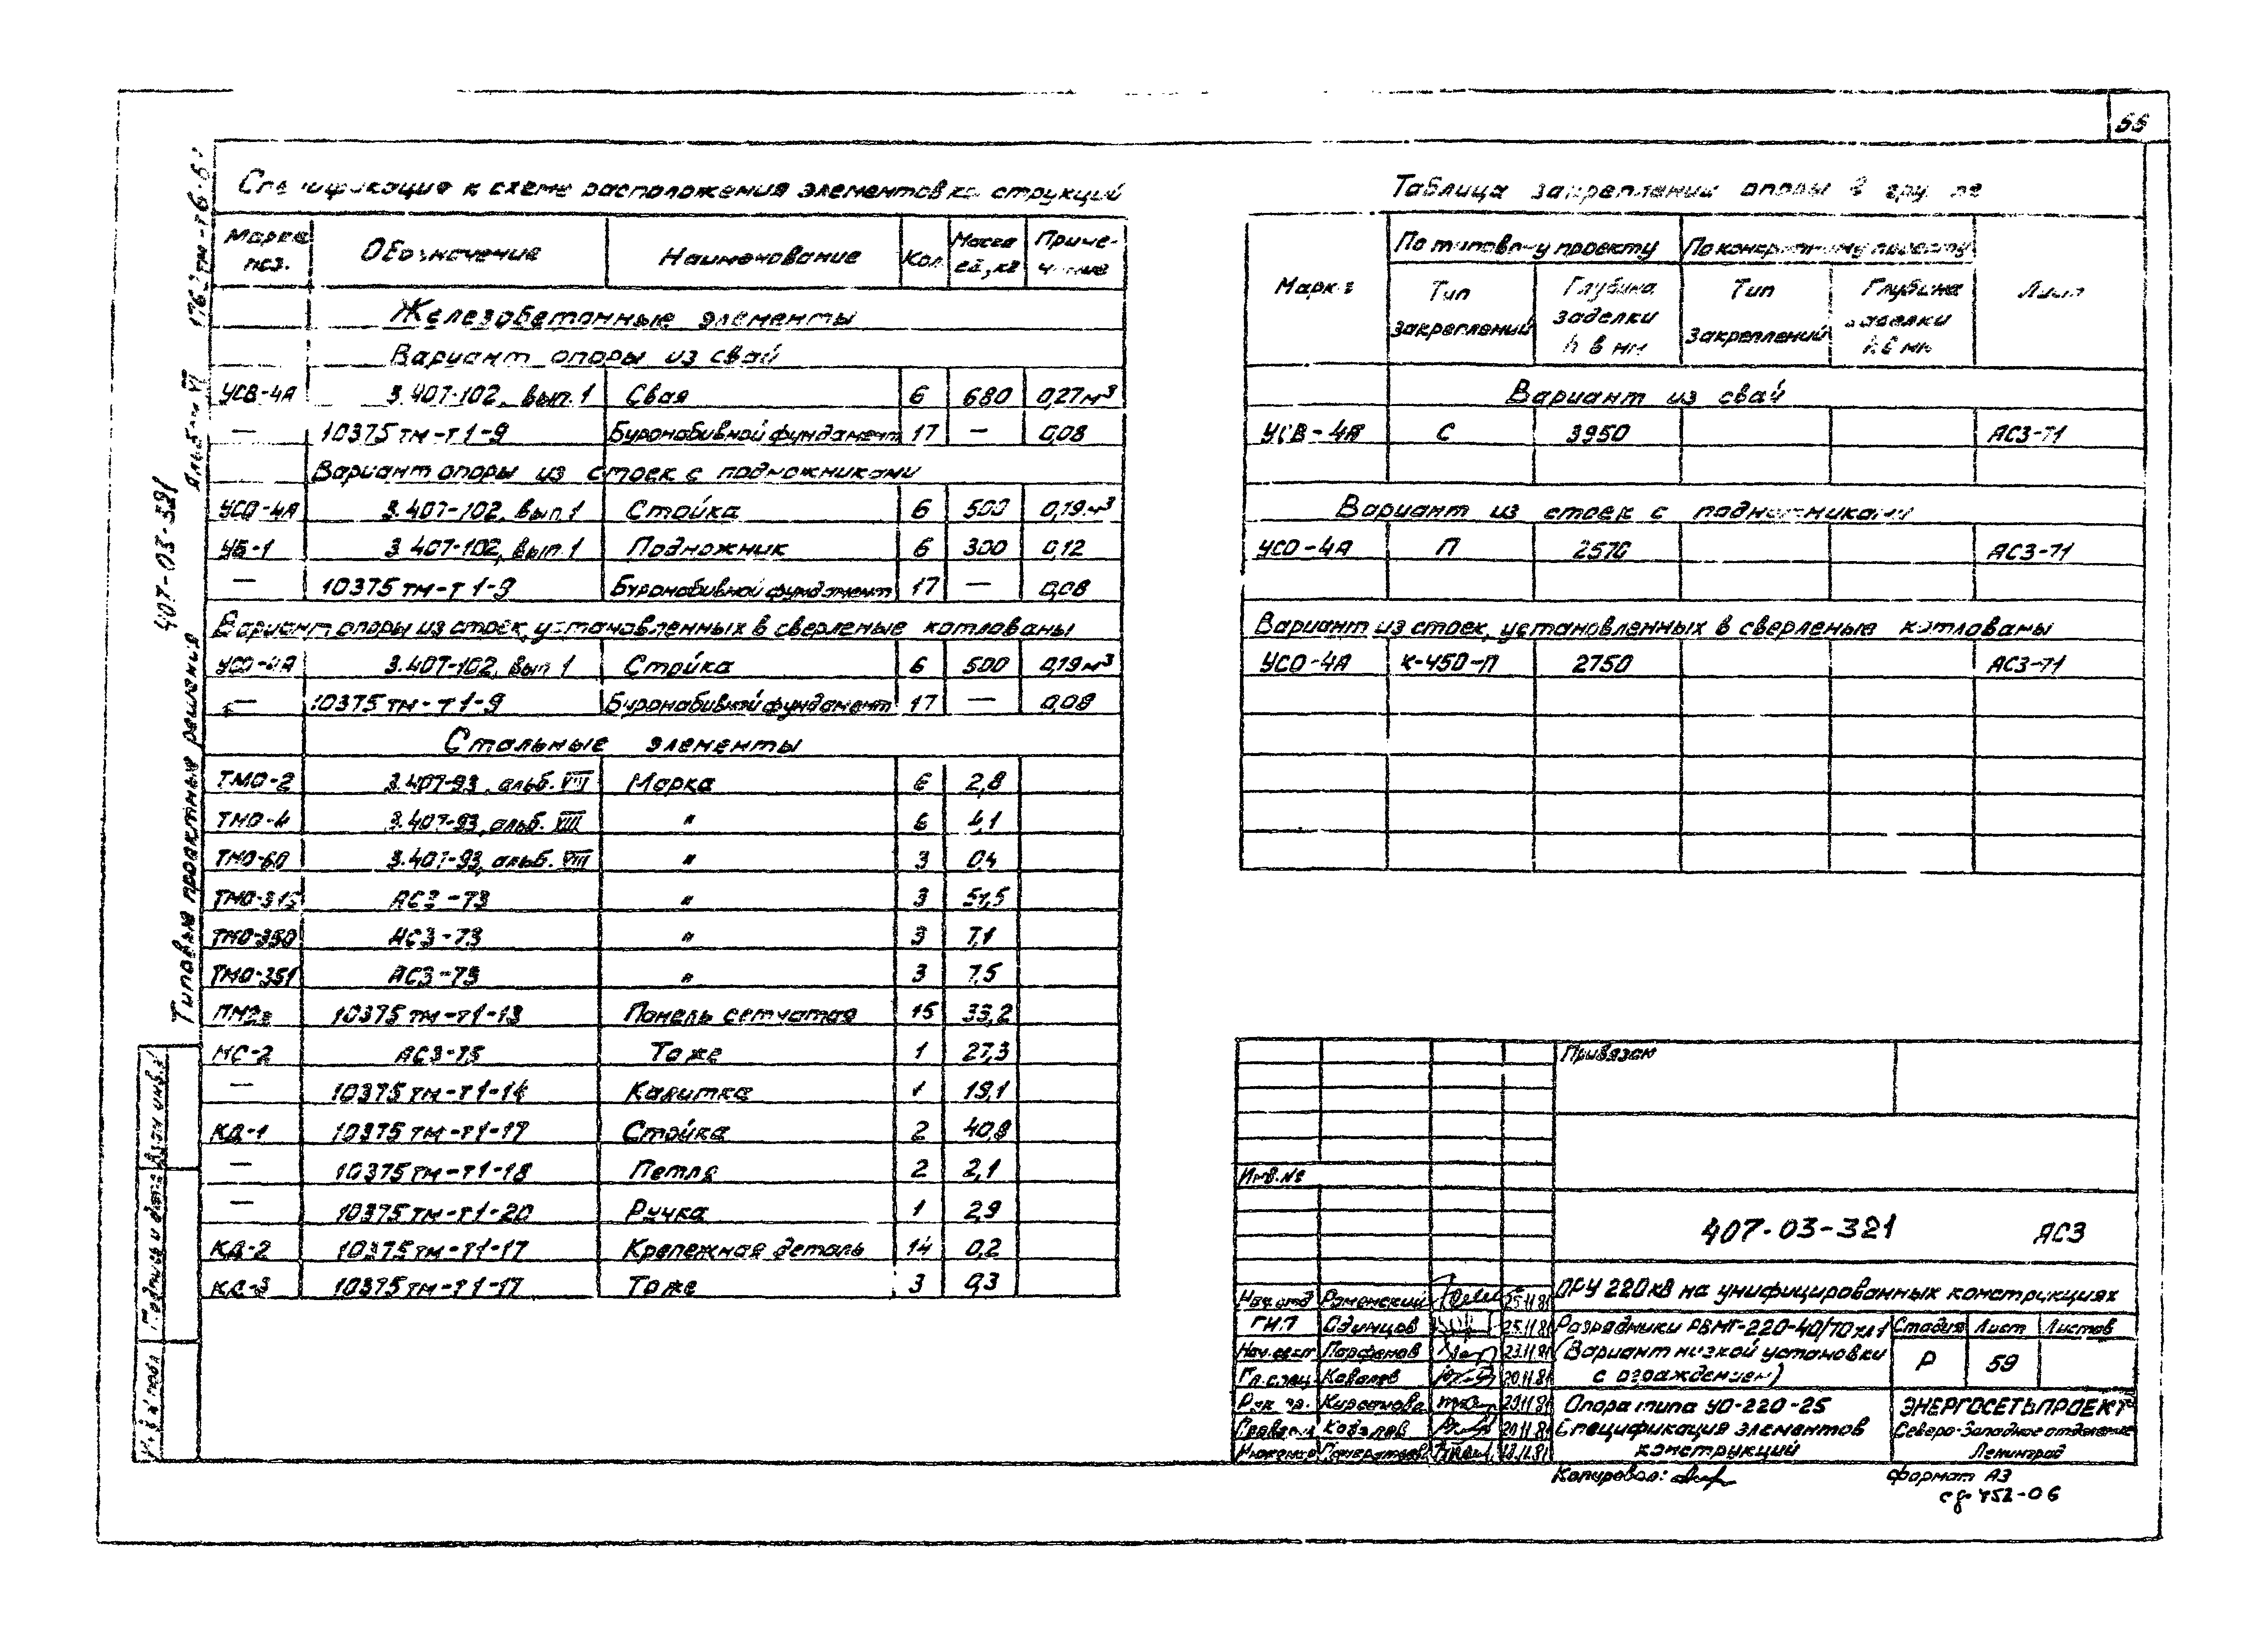 55
Спецификация к схеме расположения элементов конструкций
Марка поз. Обозначение Наименование Кол. Масса ед., кг Примечание
Железобетонные элементы
Вариант опоры из свай
УСВ-4А 3.407-102, вып.1 Свая 6 680 0,27м³
— 10375тм-т1-9 Буронабивной фундамент 17 — 0,08
Вариант опоры из стоек с подножниками
УСО-4А 3.407-102, вып.1 Стойка 6 500 0,19м³
УБ-1 3.407-102, вып.1 Подножник 6 300 0,12
— 10375тм-т1-9 Буронабивной фундамент 17 — 0,08
Вариант опоры из стоек, установленных в сверленые котлованы
УСО-4А 3.407-102, вып 1 Стойка 6 500 0,19м³
— 10375тм-т1-9 Буронабивной фундамент 17 — 0,08
Стальные элементы
ТМО-2 3.407-93, альб. VIII Марка 6 2,8
ТМО-4 3.407-93, альб. VIII " 6 4,1
ТМО-60 3.407-93, альб. VIII " 3 0,4
ТМО-315 АС3-73 " 3 51,5
ТМО-350 АС3-73 " 3 7,1
ТМО-351 АС3-73 " 3 7,5
10375тм-т1-13 Панель сетчатая 15 33,2
МС-2 АС3-75 То же 1 27,3
— 10375тм-т1-14 Калитка 1 19,1
КД-1 10375тм-т1-17 Стойка 2 40,8
— 10375тм-т1-18 Петля 2 2,1
— 10375тм-т1-20 Ручка 1 2,9
КД-2 10375тм-т1-17 Крепежная деталь 14 0,2
КД-3 10375тм-т1-17 То же 3 0,3
Таблица закреплений опоры в грунте
Марка По типовому проекту По конкретному проекту Лист
Тип закреплений Глубина заделки h в мм Тип закреплений Глубина заделки h в мм
Вариант из свай
УСВ-4А С 3950 АС3-71
Вариант из стоек с подножниками
УСО-4А П 2570 АС3-71
Вариант из стоек, установленных в сверленые котлованы
УСО-4А К-450-П 2750 АС3-71
Типовые проектные решения 407-03-321 Альбом VI
Взам инв.
Подпись и дата
Привязан
Инв.№
407-03-321 АС3
ОРУ 220кв на унифицированных конструкциях
Нач.отд Роменский 25.11.81
ГИП Одинцов 25.11.81
Парфенов 23.11.81
Гл.спец. Ковалев 20.11.81
Рук. гр. Курсанова 20.11.81
Ковалев 20.11.81
Инженер
Разрядники РВМГ-220-40/70
(Вариант низкой установки
с ограждением)
Стадия Лист Листов
Р 59
Опора типа УО-220-25
Спецификация элементов
конструкций
ЭНЕРГОСЕТЬПРОЕКТ
Северо-Западное отделение
Ленинград
Копировал:
формат А3